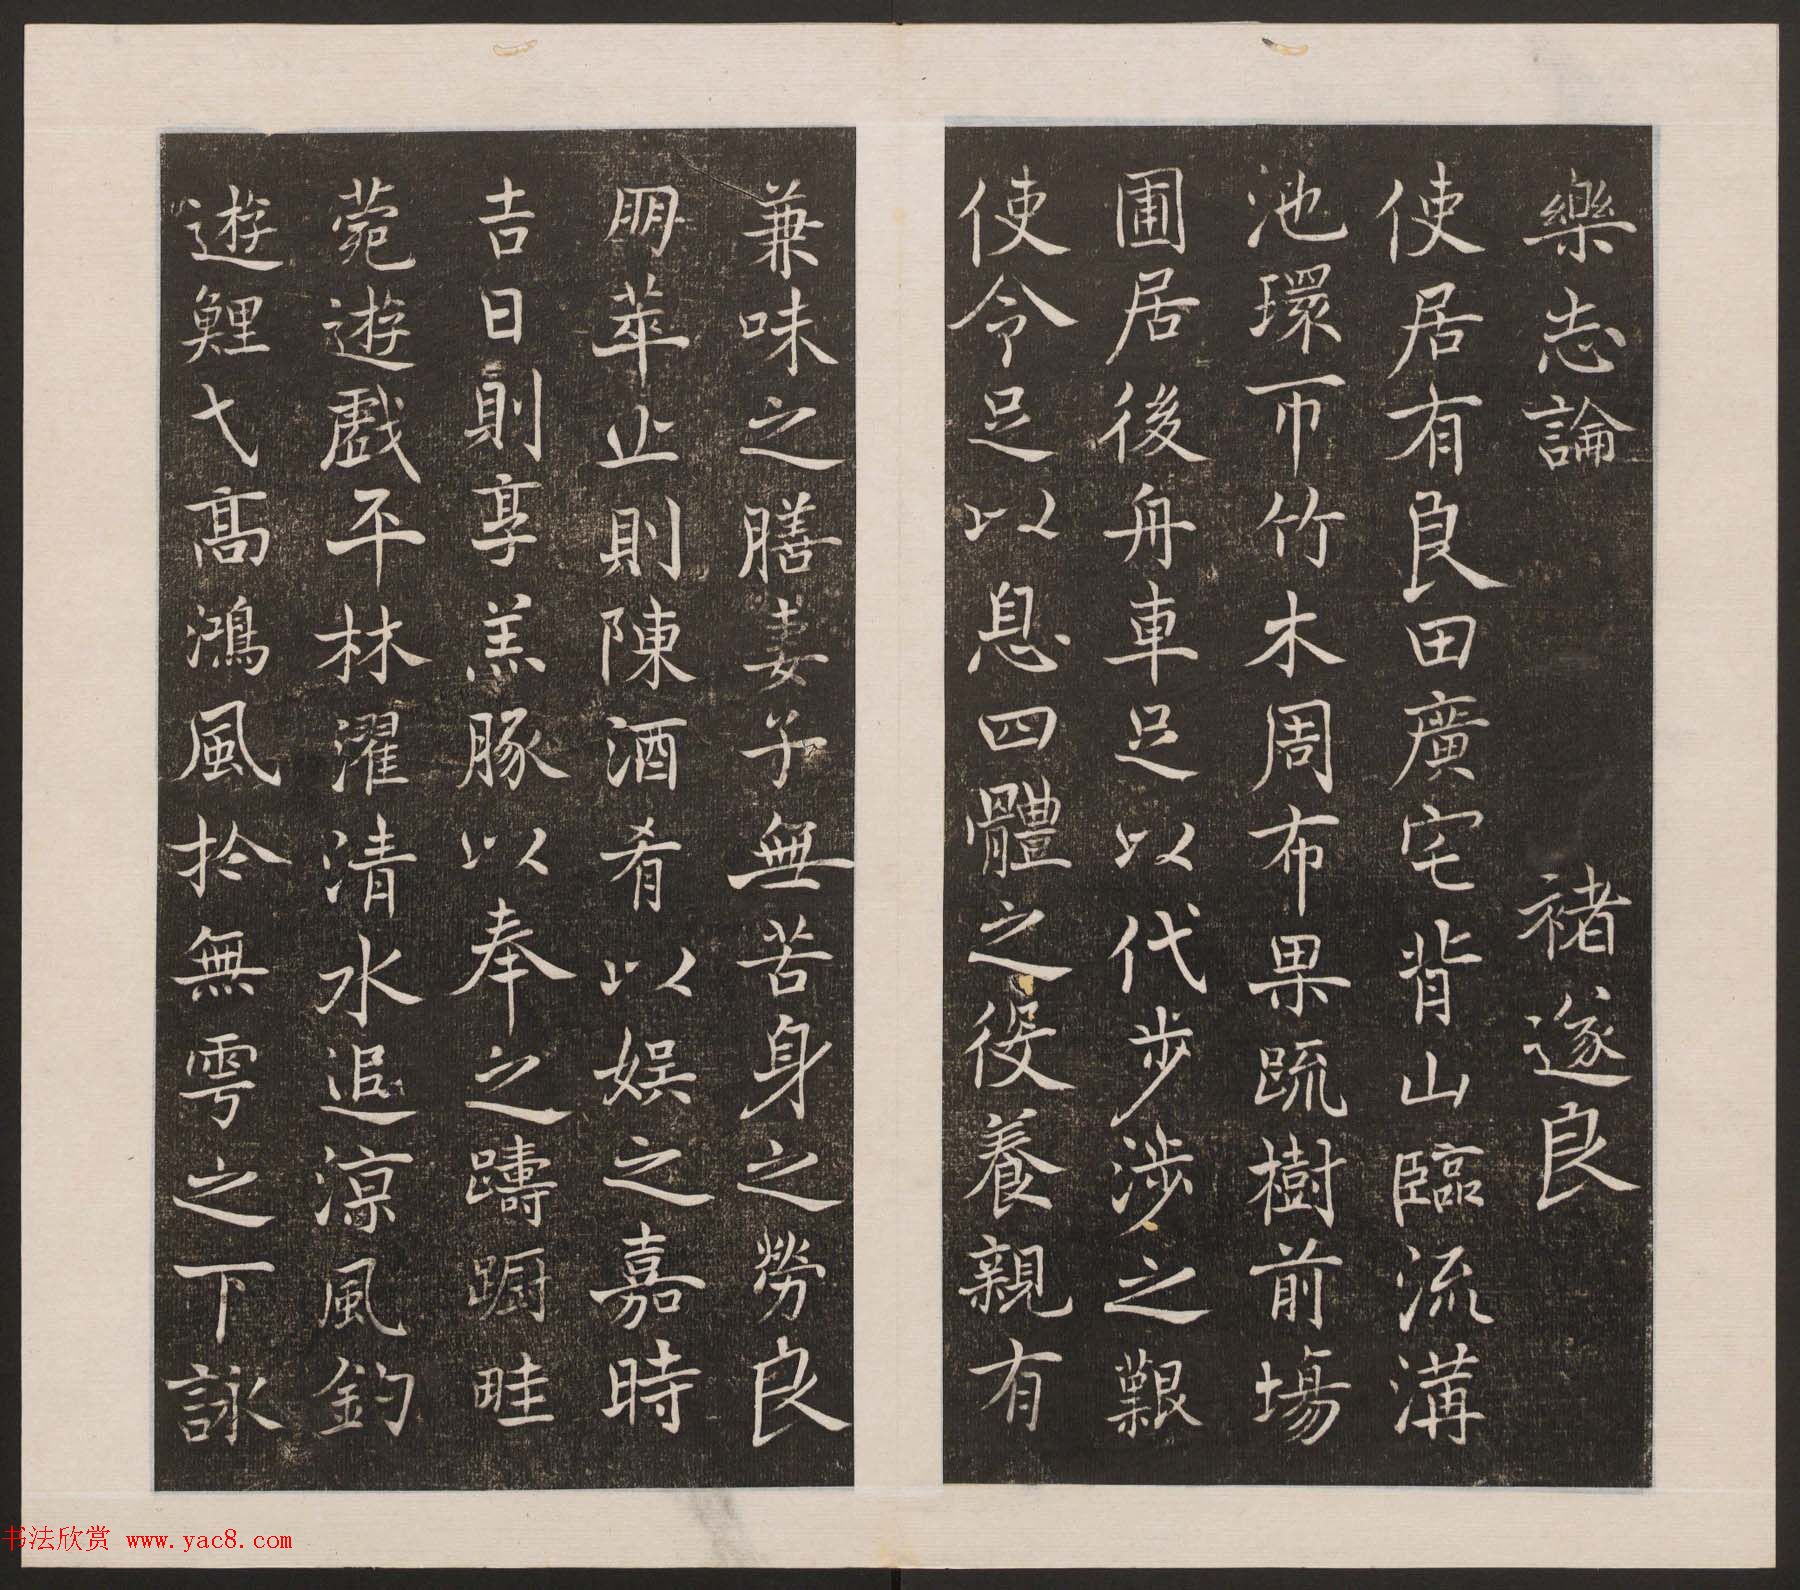 樂志論 褚遂良
使居有良田廣宅背山臨流溝
池環帀竹木周布果蔬樹前場
圃居後舟車足以代步涉之艱
使令足以息四體之役養親有
兼味之膳妻子無苦身之勞良
朋萃止則陳酒肴以娛之嘉時
吉日則亨羔豚以奉之躊躕畦
菀遊戲平林濯清水追涼風釣
遊鯉弋高鴻風於無雩之下詠
书法欣赏 www.yac8.com